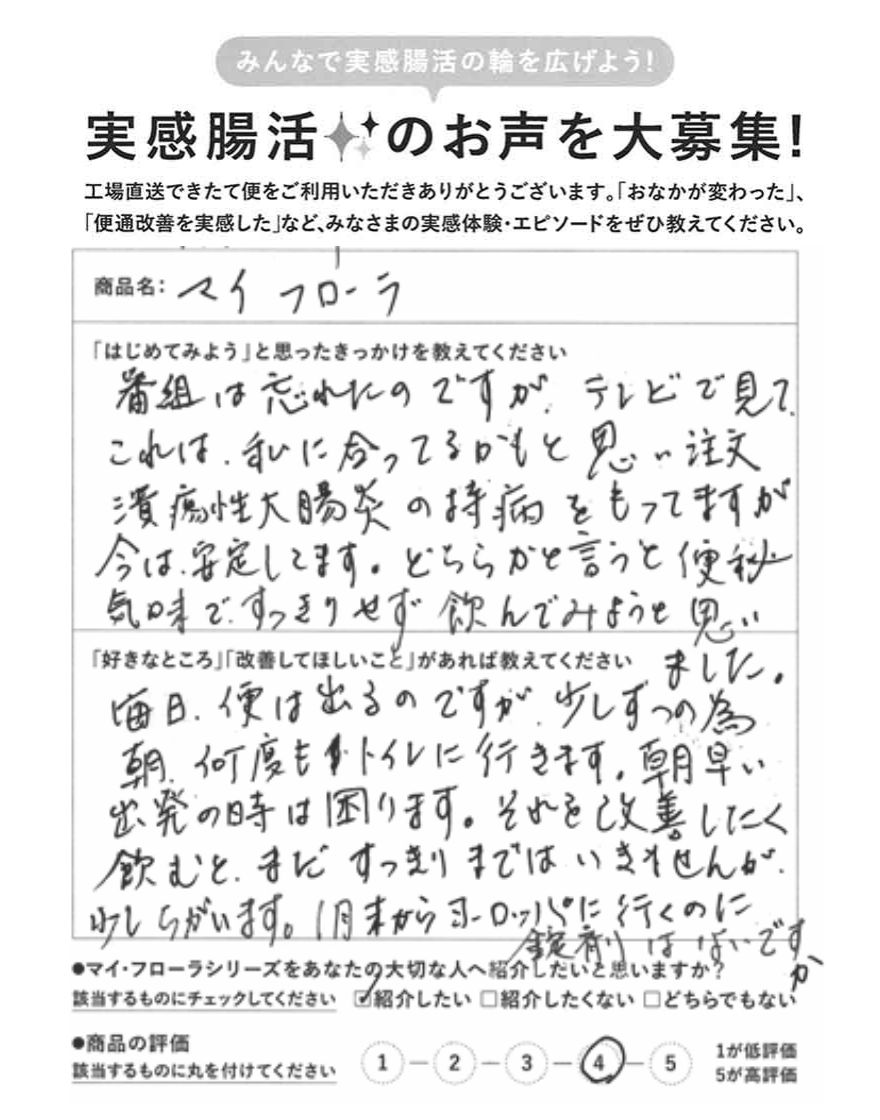 みんなで実感腸活の輪を広げよう!
実感腸活のお声を大募集!
工場直送できたて便をご利用いただきありがとうございます。「おなかが変わった」、
「便通改善を実感した」など、みなさまの実感体験・エピソードをぜひ教えてください。
商品名: マイ フローラ
「はじめてみよう」と思ったきっかけを教えてください
番組は忘れたのですが、テレビで見て、
これは、私に合ってるかもと思い注文
潰瘍性大腸炎の持病をもってますが
今は、安定してます。どちらかと言うと便秘
気味で、すっきりせず飲んでみようと思い
ました。
「好きなところ」「改善してほしいこと」があれば教えてください
毎日、便は出るのですが、少しずつの為
朝、何度もトイレに行きます。朝早い
出発の時は困ります。それを改善したく
飲むと、まだすっきりまではいきませんが、
少しちがいます。1月末からヨーロッパに行くのに
錠剤はないですか
●マイ・フローラシリーズをあなたの大切な人へ紹介したいと思いますか?
該当するものにチェックしてください ☑紹介したい □紹介したくない □どちらでもない
●商品の評価
該当するものに丸を付けてください
1 2 3 4 5
1が低評価
5が高評価